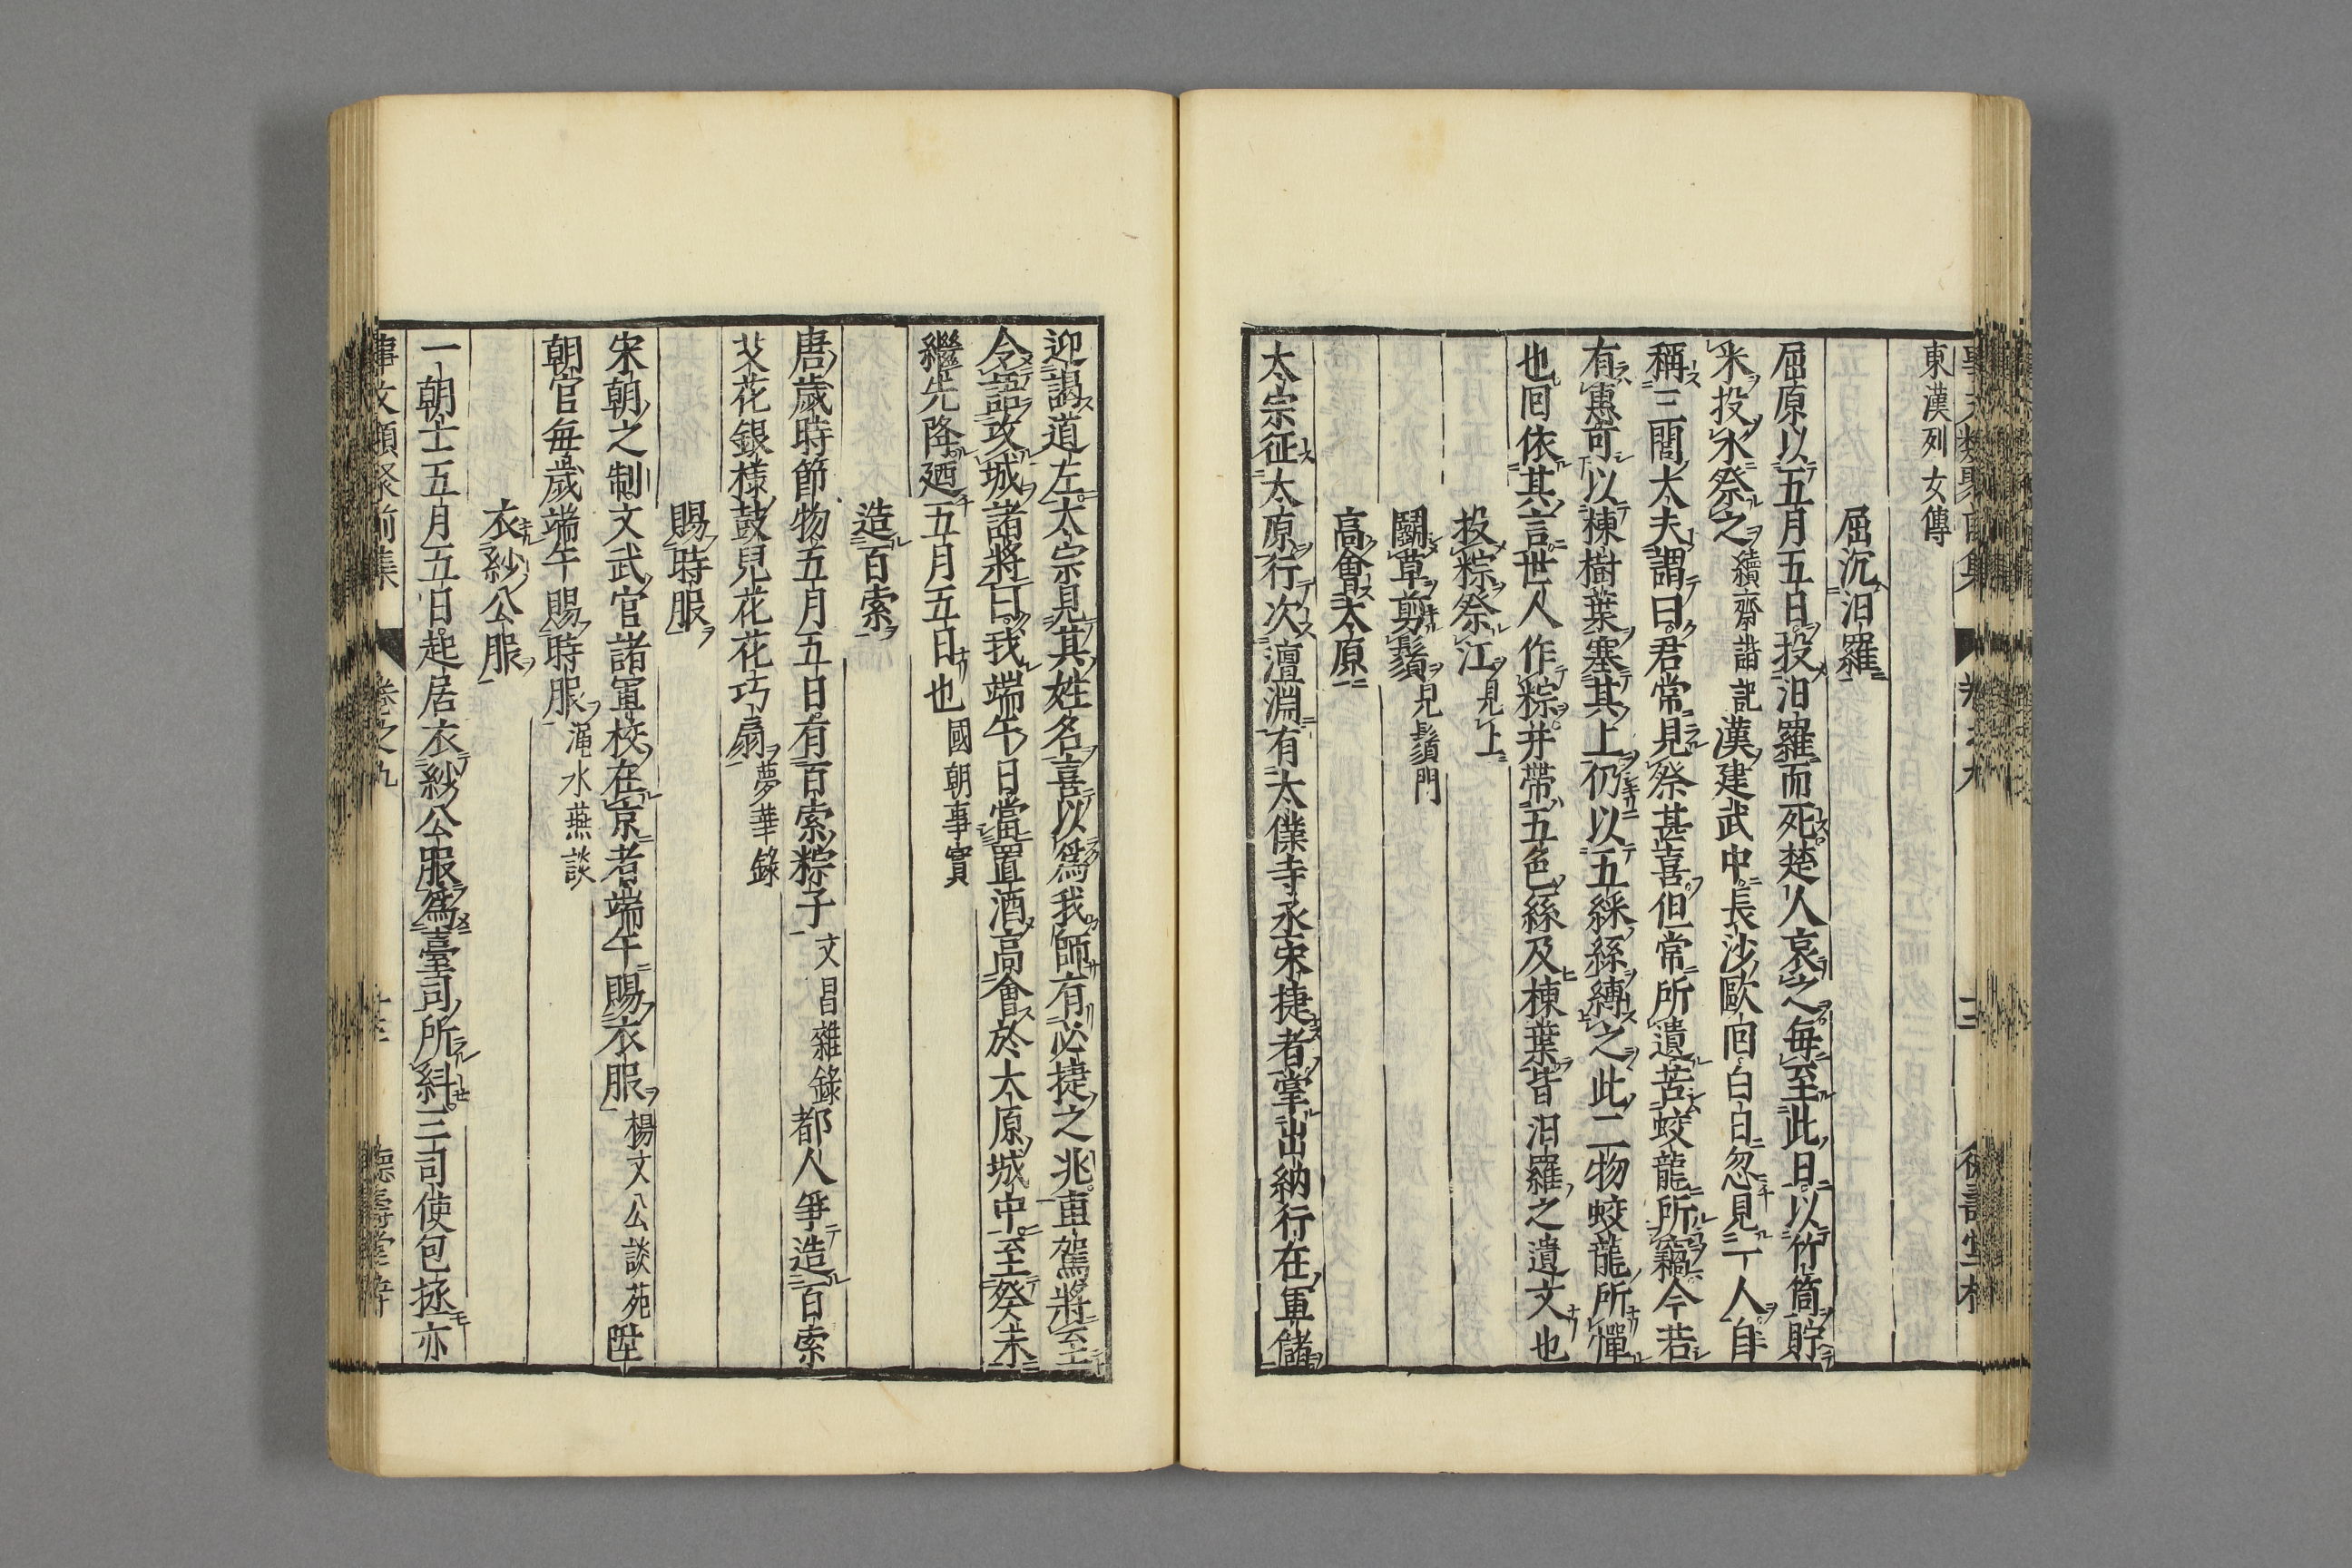 東漢列女傳
屈沉汨羅
屈原以五月五日投汨羅而死楚人哀之毎至此日以竹筒貯
米投水祭之續齊諧記漢建武中長沙歐囘白日忽見一人自
稱三閭大夫謂曰君常見祭甚喜但常所遺苦蛟龍所竊今若
有惠可以楝樹葉塞其上仍以五綵絲縛之此二物蛟龍所憚
也囘依其言世人作粽并帶五色絲及楝葉皆汨羅之遺文也
投粽祭江見上
鬭草剪鬚見鬚門
高會太原
太宗征太原行次澶淵有太僕寺丞宋捷者掌出納行在軍儲
迎謁道左太宗見其姓名喜以爲我師有必捷之兆車駕將至
令語攻城諸將曰我端午日當置酒高會於太原城中至癸未
繼先降廼五月五日也國朝事實
造百索
唐歲時節物五月五日有百索粽子文昌雜錄都人爭造百索
艾花銀樣鼓兒花花巧扇夢華錄
賜時服
宋朝之制文武官諸軍校在京者端午賜衣服楊文公談苑陞
朝官毎歲端午賜時服澠水燕談
衣紗公服
一朝士五月五日起居衣紗公服爲臺司所糾三司使包拯亦
事文類聚前集 卷之九